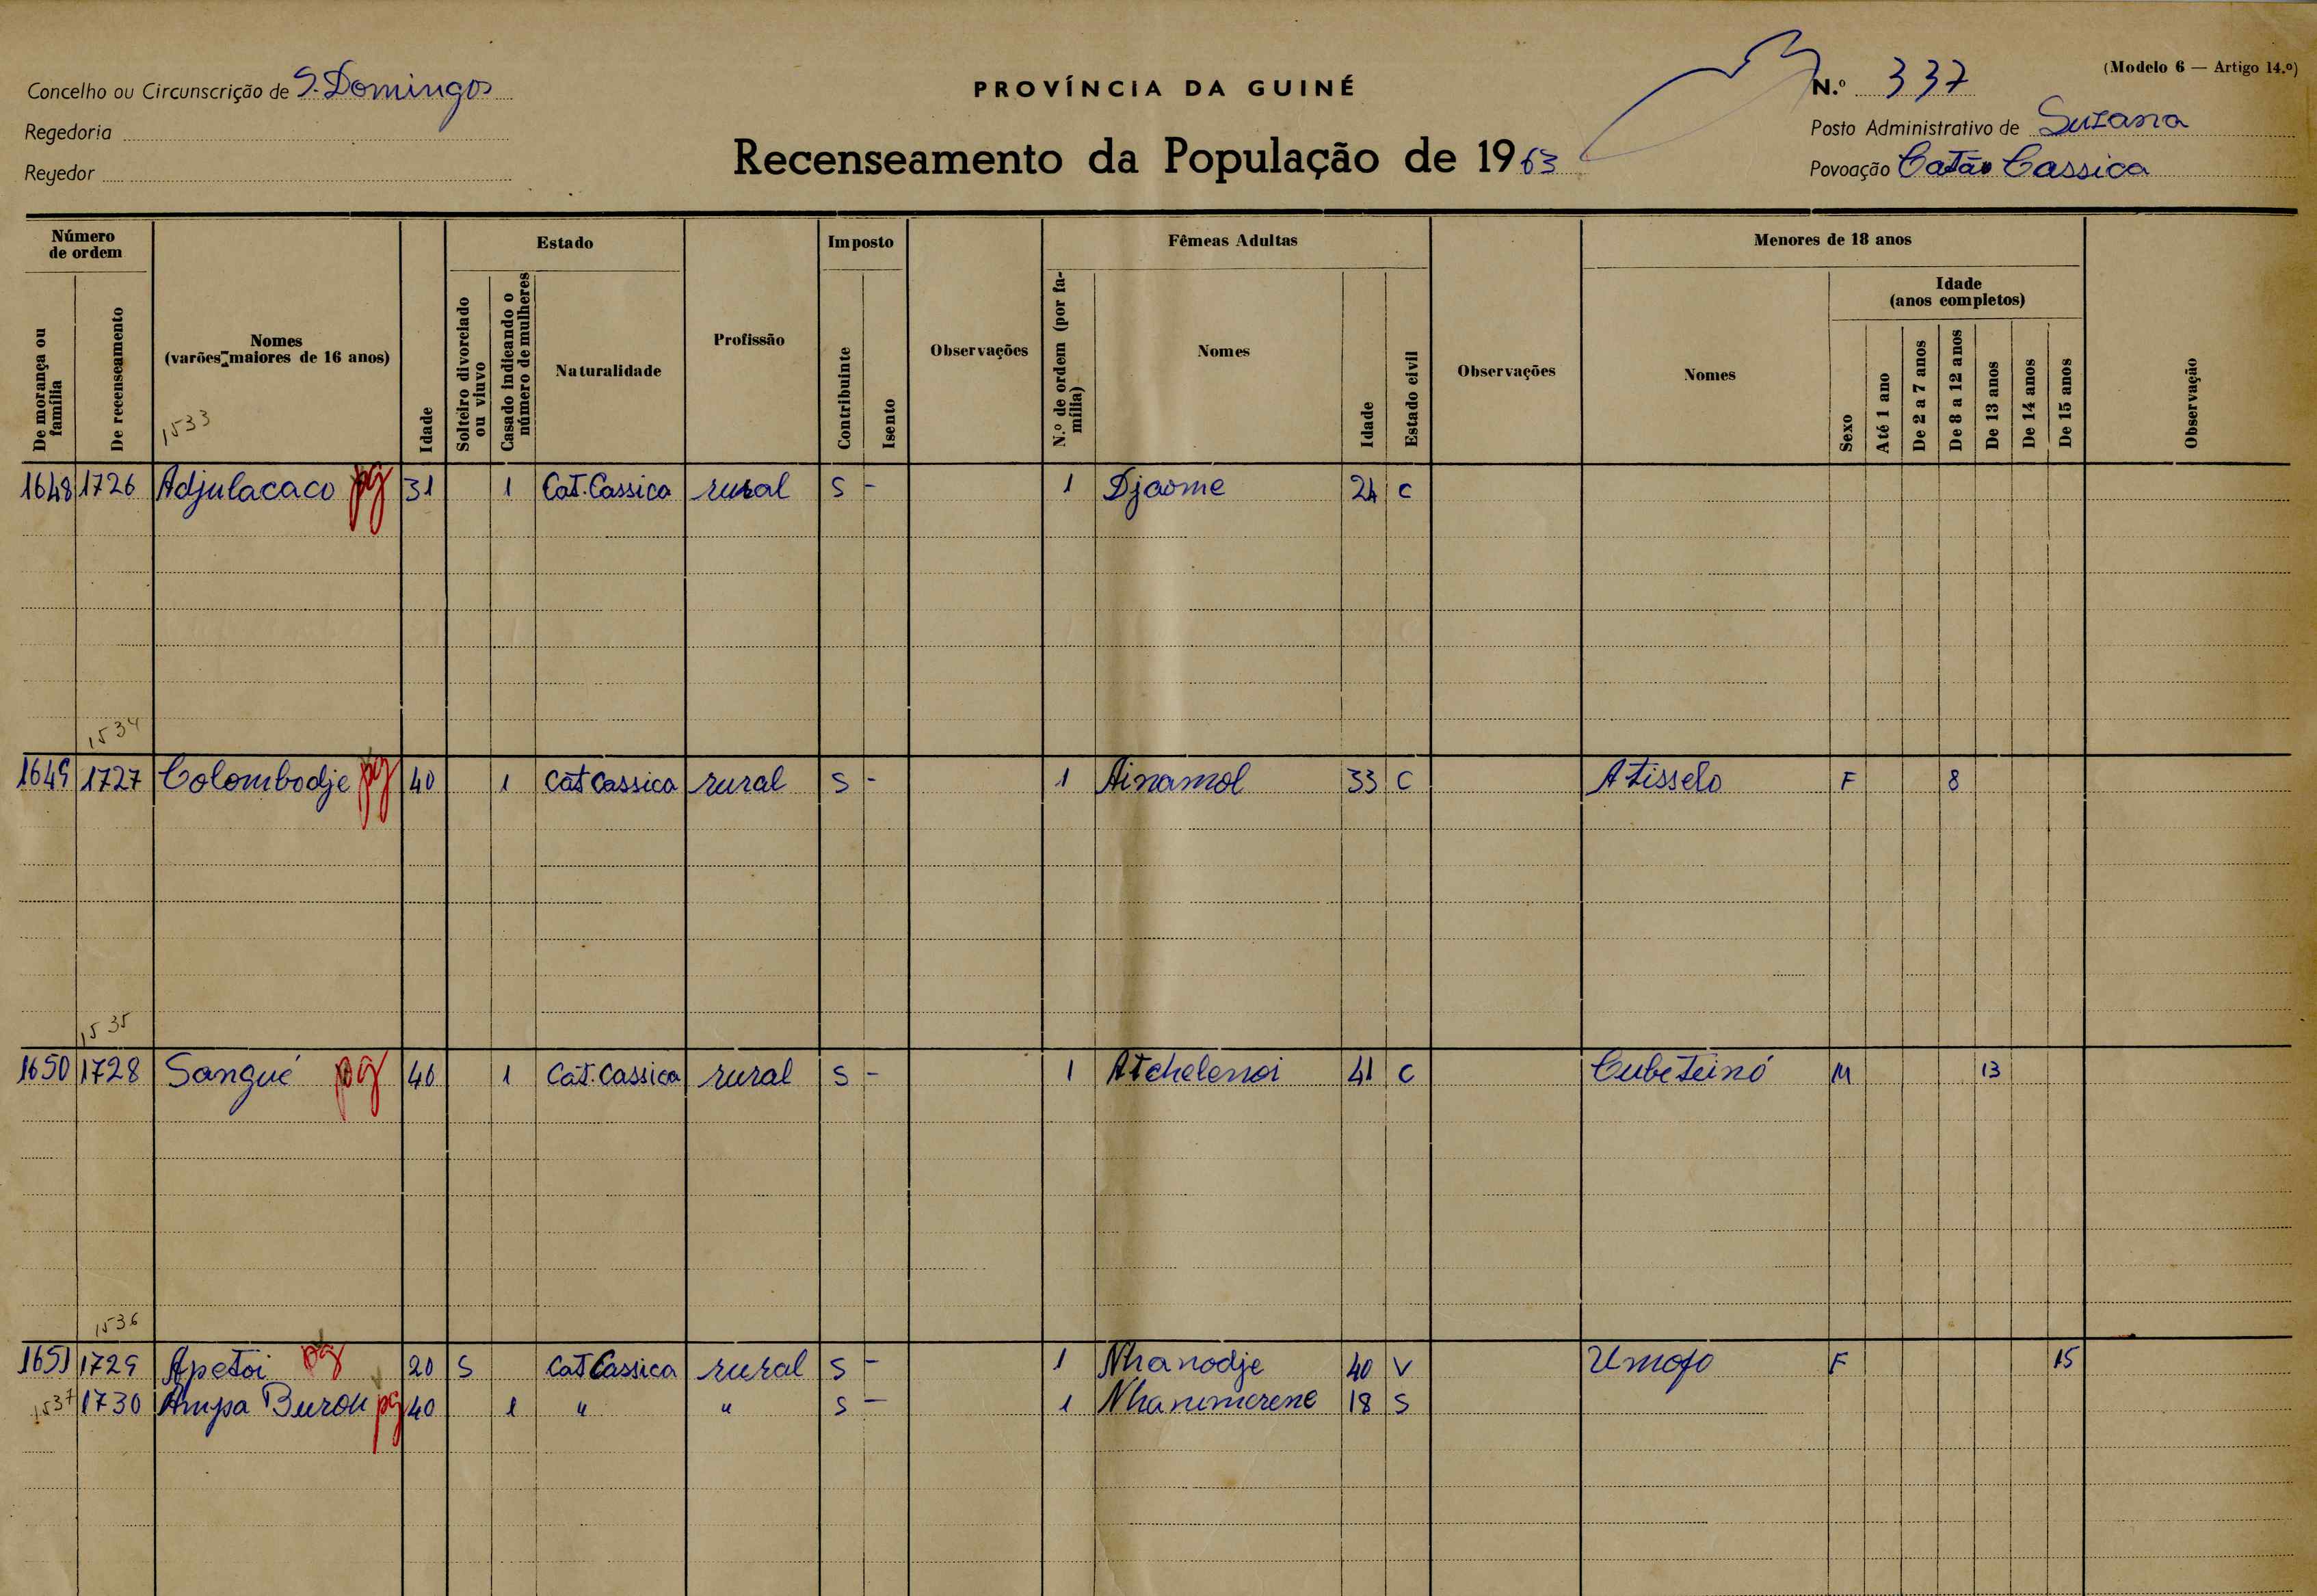 (Modelo 6 — Artigo 14.º)
Concelho ou Circunscrição de S. Domingos
PROVÍNCIA DA GUINÉ
N.º 337
Regedoria
Posto Administrativo de Suzana
Reyedor
Recenseamento da População de 1963
Povoação Catão Cassica
Número de ordem
Estado
Imposto
Fêmeas Adultas
Menores de 18 anos
Idade (anos completos)
De morança ou família
De recenseamento
Nomes (varões maiores de 16 anos)
Idade
Solteiro divorciado ou viuvo
Casado indicando o número de mulheres
Naturalidade
Profissão
Contribuinte
Isento
Observações
N.º de ordem (por família)
Nomes
Idade
Estado civil
Observações
Nomes
Sexo
Até 1 ano
De 2 a 7 anos
De 8 a 12 anos
De 13 anos
De 14 anos
De 15 anos
Observação
1533
1648 1726 Adjulacaco pg 31 1 Cat. Cassica rural S - 1 Djaome 24 C
1534
1649 1727 Colombodje pg 40 1 Cat Cassica rural S - 1 Ainamol 33 C Atisselo F 8
1535
1650 1728 Sangué pg 46 1 Cat. Cassica rural S - 1 Atchelenoi 41 C Cubeteinó M 13
1536
1651 1729 Apetoi pg 20 S Cat Cassica rural S - 1 Nhanodje 40 V Umofo F 15
1537 1730 Ampa Buron pg 40 1 " " S - 1 Nhanimerene 18 S